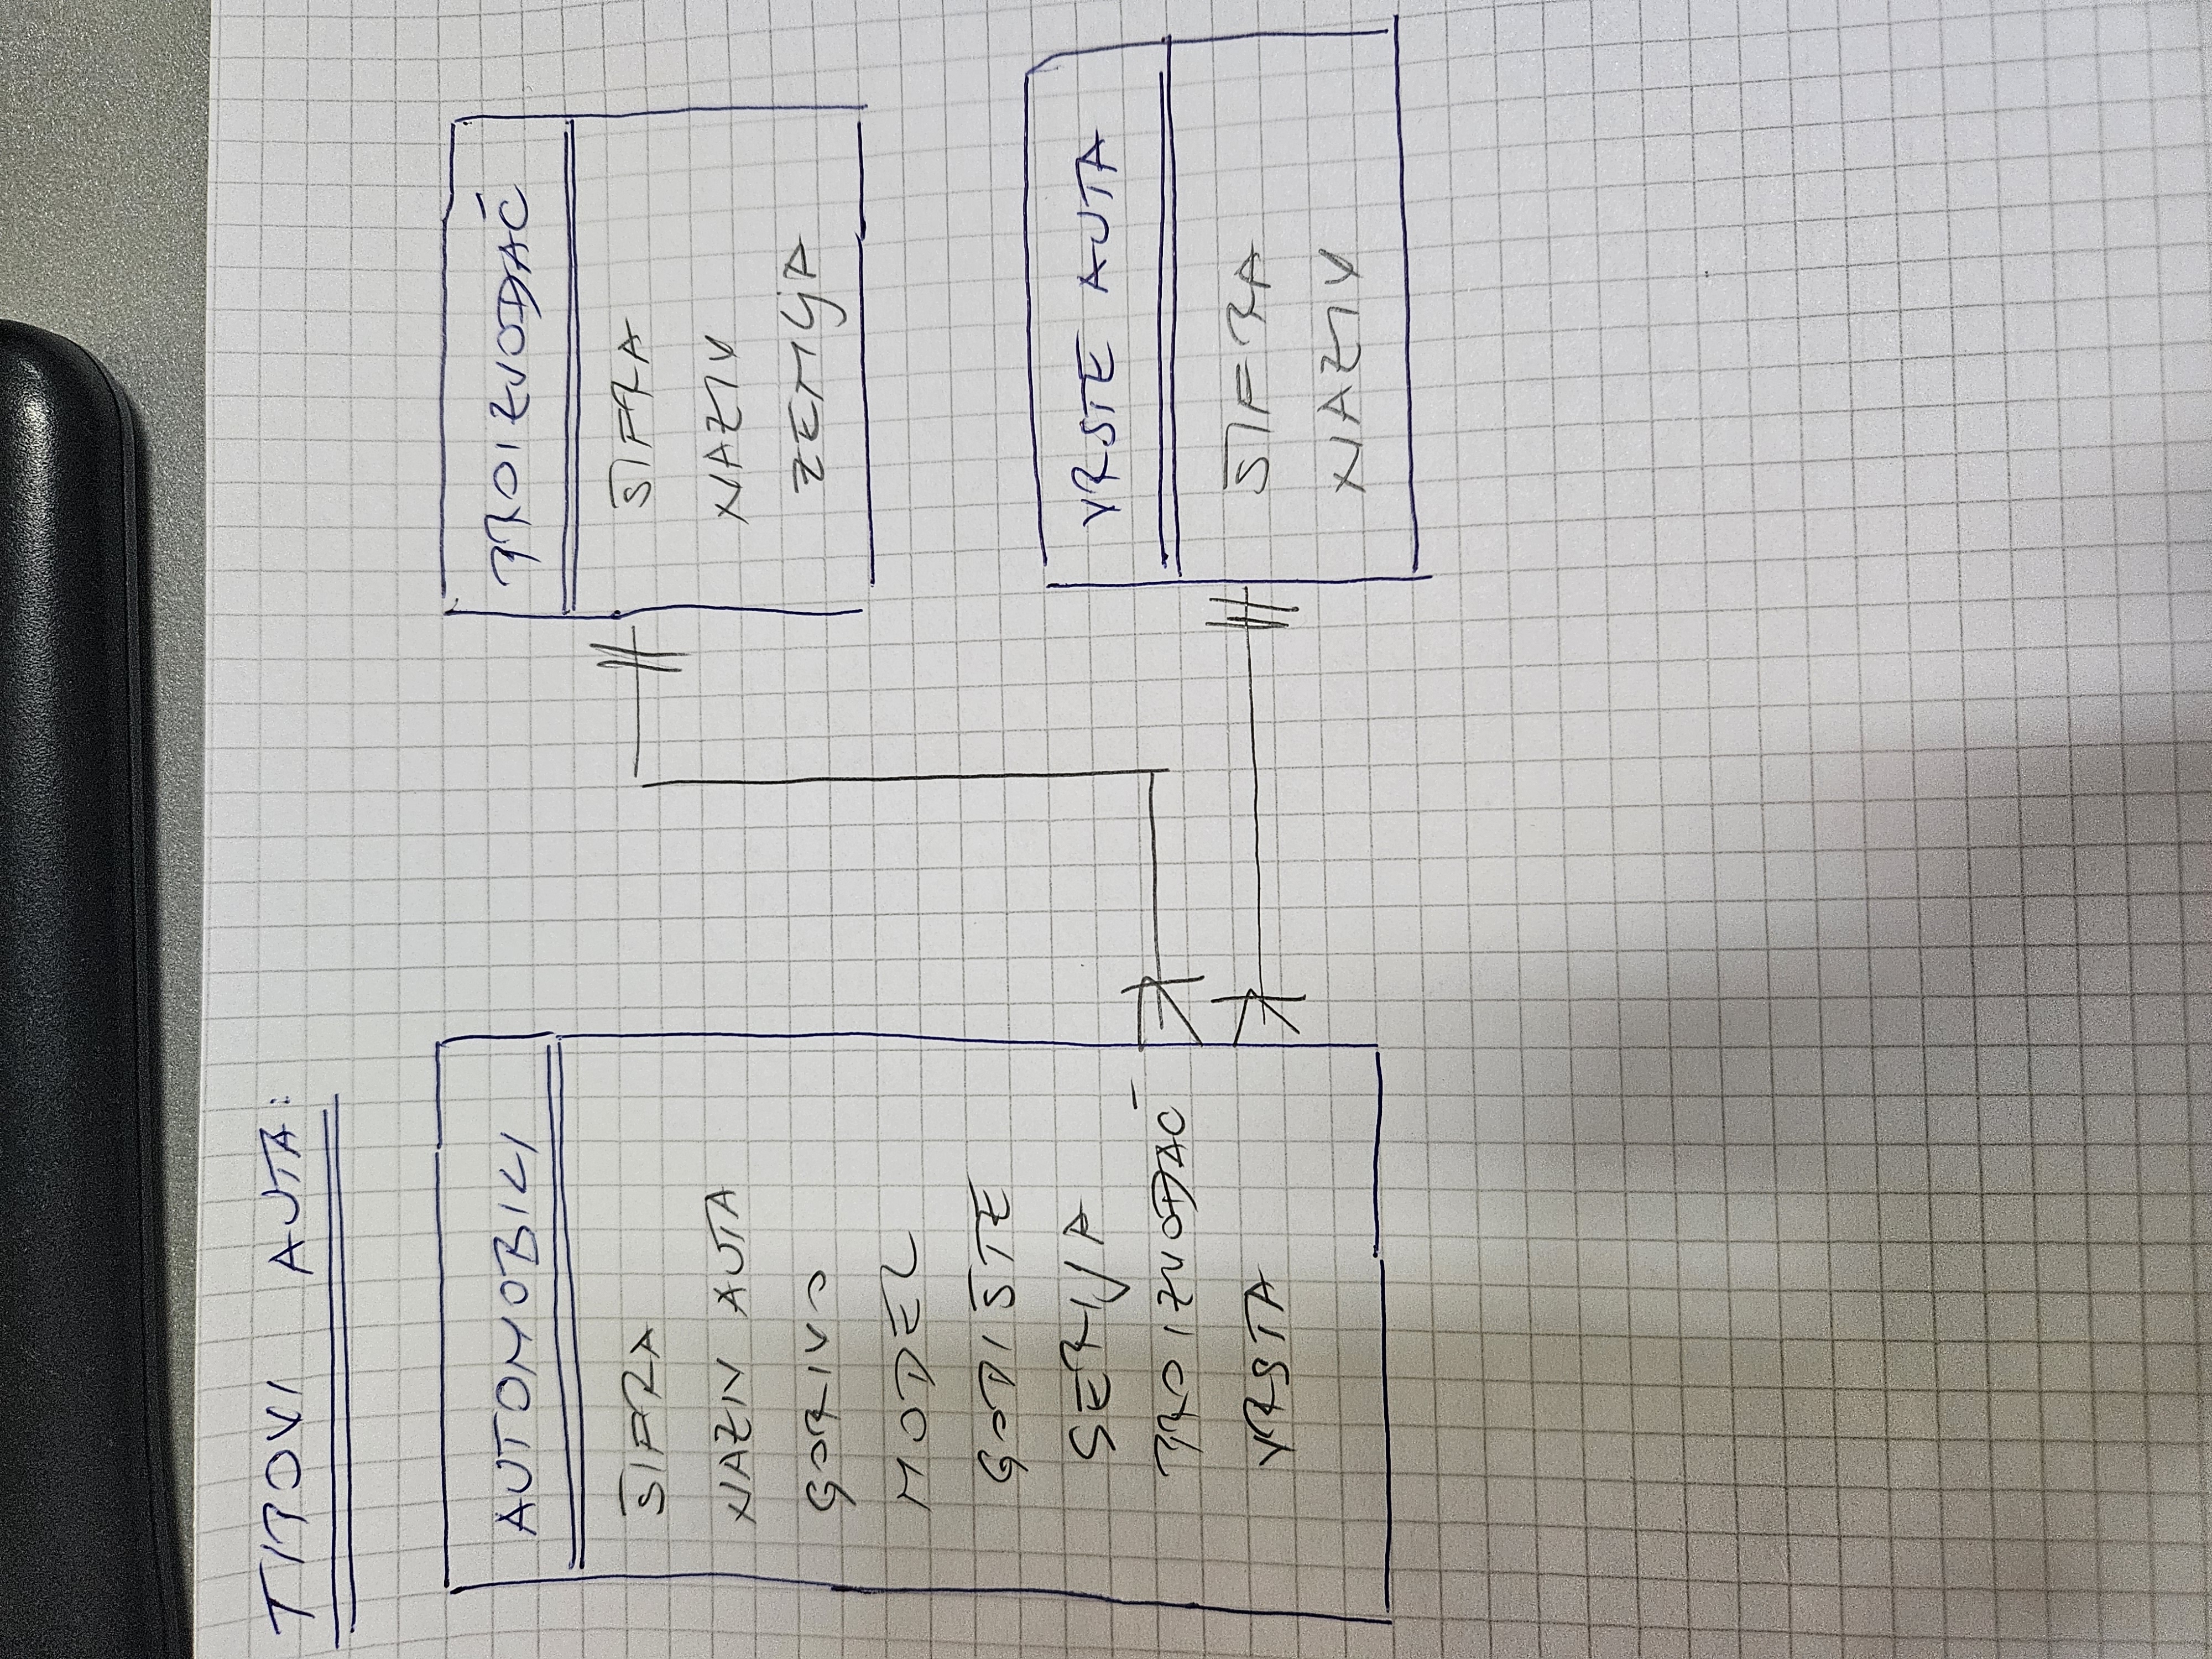 TIPOVI AUTA:
AUTOMOBILI
ŠIFRA
NAZIV AUTA
GORIVO
MODEL
GODIŠTE
SERIJA
PROIZVOĐAČ
VRSTA
PROIZVOĐAČ
ŠIFRA
NAZIV
ZEMLJA
VRSTE AUTA
ŠIFRA
NAZIV